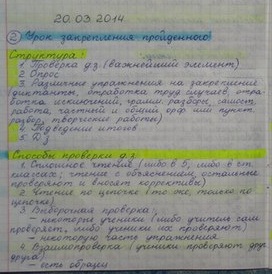 20.03.2014
② Урок закрепления пройденного
Структура:
1. Проверка д.з. (важнейший элемент)
2. Опрос
3. Различные упражнения на закрепление
(диктанты, отработка труд. случаев, отра-
ботка исключений, грамм. разборы, самост.
работа, частный и общий орф. или пункт.
разбор, творческие работы)
4. Подведение итогов
5. ДЗ
Способы проверки д.з.
1. Сплошное чтение (либо в 5, либо в
классах; чтение с объяснением, остальные
проверяют и вносят коррективы)
2. Чтение по цепочке (то же, только по
цепочке)
3. Выборочная проверка:
- некоторые ученики (либо учитель сам
проверяет, либо ученики проверяют)
- некоторую часть упражнения
4. Взаимопроверка (ученики проверяют друг
друга):
- есть образец